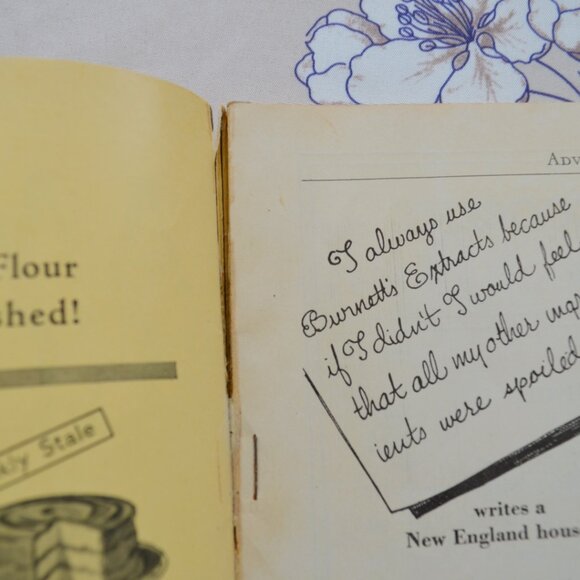 Flour
shed!
ly Stale
ADV
I always use
Burnett's Extracts because
if I didn't I would feel
that all my other ingr
ients were spoiled
writes a
New England hous